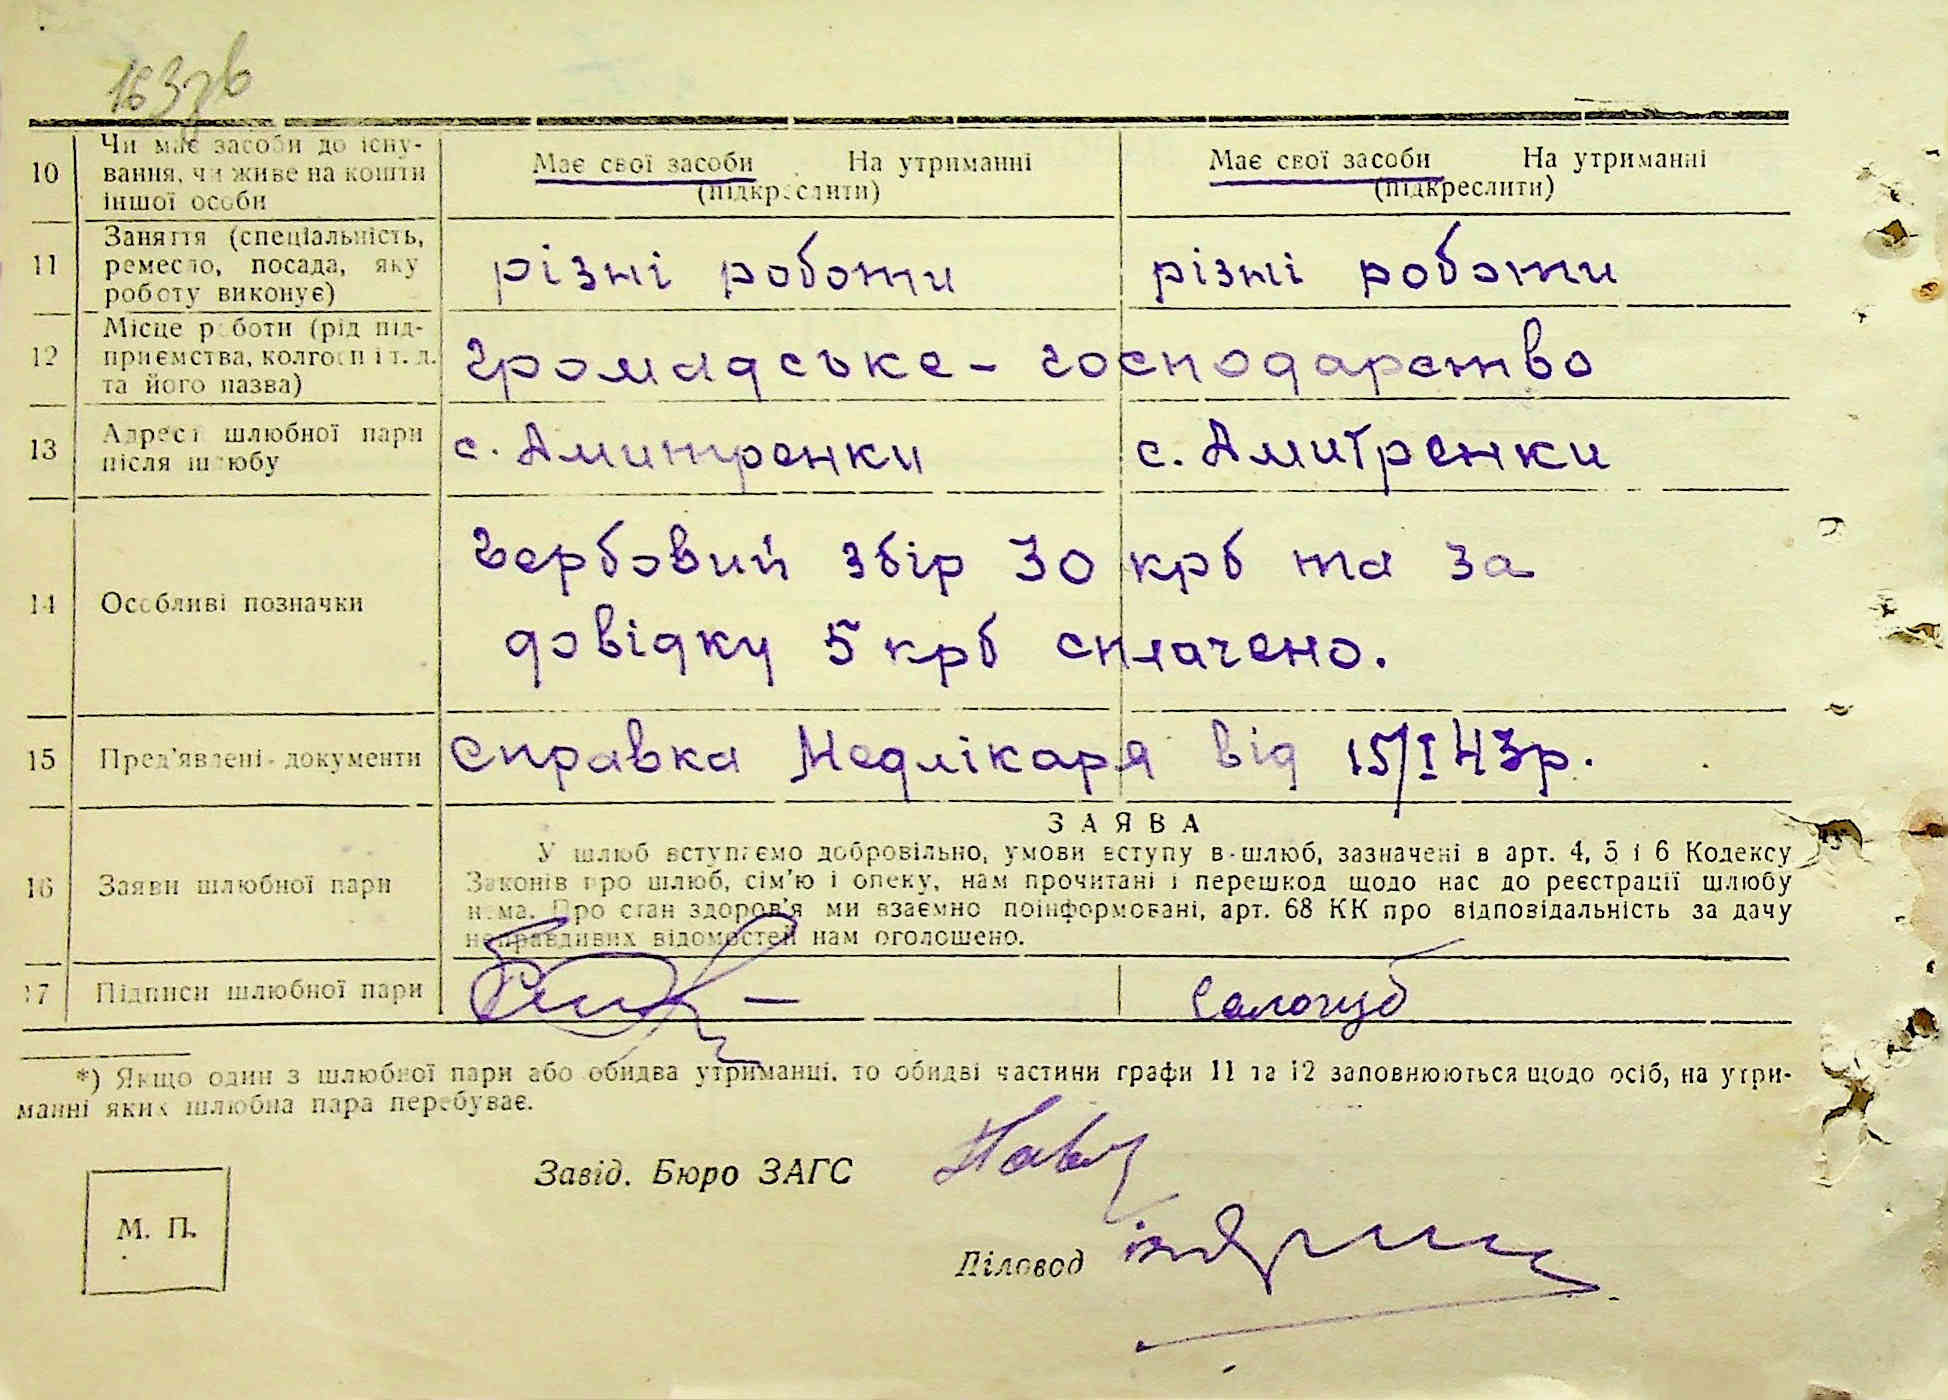 163зв
10
Чи має засоби до існу-
вання, чи живе на кошти
іншої особи
Має свої засоби На утриманні
(підкреслити)
Має свої засоби На утриманні
(підкреслити)
11
Заняття (спеціальність,
ремесло, посада, яку
роботу виконує)
різні роботи
різні роботи
12
Місце роботи (рід під-
приємства, колгосп і т. д.
та його назва)
громадське - господарство
13
Адреса шлюбної пари
після шлюбу
с. Дмитренки
с. Дмитренки
14
Особливі позначки
гербовий збір 30 крб та за
довідку 5 крб сплачено.
15
Пред'явлені документи
справка Медлікаря від 15/I 43р.
16
Заяви шлюбної пари
ЗАЯВА
У шлюб вступаємо добровільно, умови вступу в шлюб, зазначені в арт. 4, 5 і 6 Кодексу
Законів про шлюб, сім'ю і опеку, нам прочитані і перешкод щодо нас до реєстрації шлюбу
нема. Про стан здоров'я ми взаємно поінформовані, арт. 68 КК про відповідальність за дачу
неправдивих відомостей нам оголошено.
17
Підписи шлюбної пари
Салогуб
*) Якщо один з шлюбної пари або обидва утриманці, то обидві частини графи 11 та 12 заповнюються щодо осіб, на утри-
манні яких шлюбна пара перебуває.
Завід. Бюро ЗАГС
М. П.
Діловод